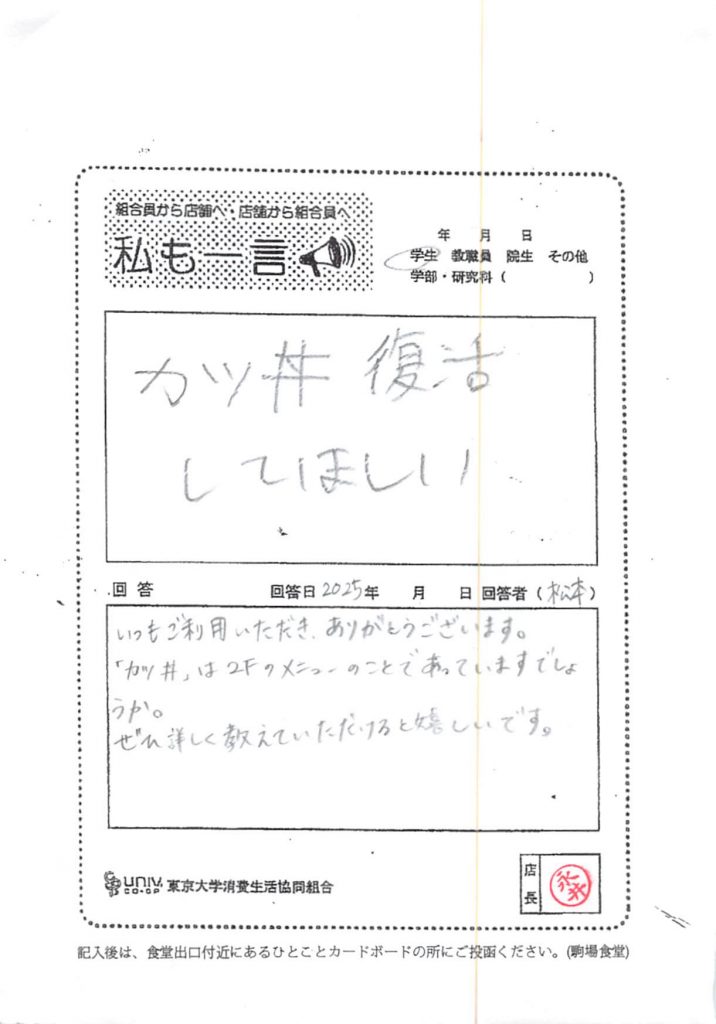 組合員から店舗へ・店舗から組合員へ
私も一言
年 月 日
学生 教職員 院生 その他
学部・研究科( )
カツ丼 復活
してほしい
回答 回答日 2025年 月 日 回答者(松本)
いつもご利用いただき、ありがとうございます。
「カツ丼」は2Fのメニューのことであっていますでしょ
うか。
ぜひ詳しく教えていただけると嬉しいです。
UNIV.
CO-OP
東京大学消費生活協同組合
店長
記入後は、食堂出口付近にあるひとことカードボードの所にご投函ください。(駒場食堂)